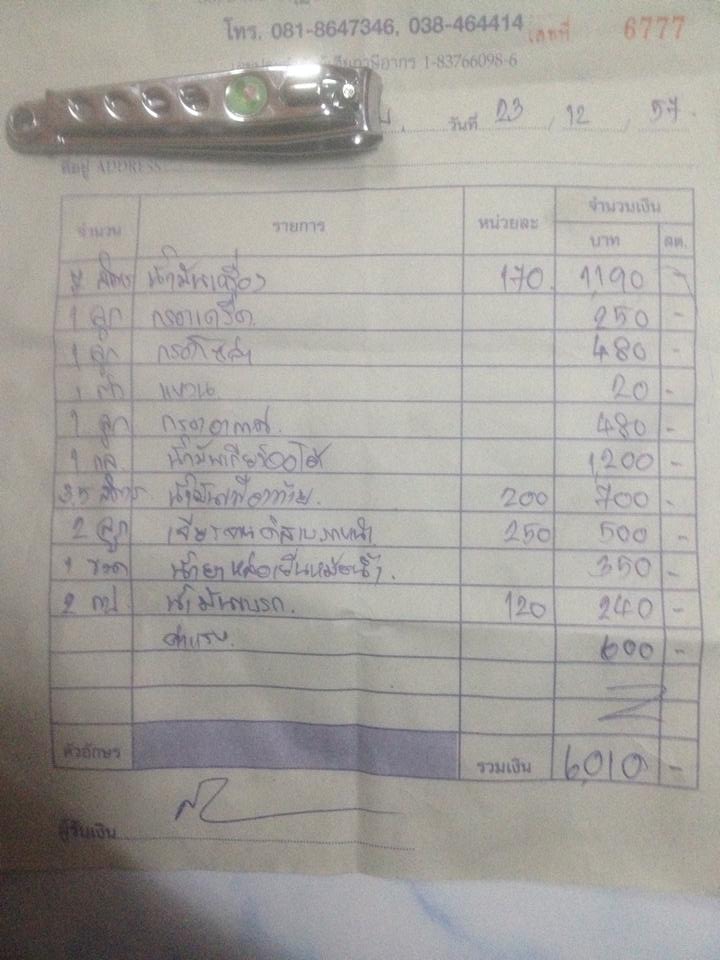 โทร. 081-8647346, 038-464414 เลขที่ 6777
ภาษีอากร 1-83766098-6
วันที่ 23 / 12 / 57
ที่อยู่ ADDRESS
จำนวน รายการ หน่วยละ จำนวนเงิน
บาท สต.
7 ลิตร น้ำมันเครื่อง 170 1,190 -
1 ลูก กรองเครื่อง 250 -
1 ลูก กรองโซล่า 480 -
1 ตัว แหวน 20 -
1 ลูก กรองอากาศ 480 -
1 กล น้ำมันเกียร์ออโต้ 1,200 -
3.5 ลิตร น้ำมันเฟืองท้าย 200 700 -
2 ลูก เจียรจานดิสเบรคหน้า 250 500 -
1 ขวด น้ำยาหล่อเย็นหม้อน้ำ 350 -
2 กป น้ำมันเบรก 120 240 -
ค่าแรง 600 -
ตัวอักษร รวมเงิน 6,010 -
ผู้รับเงิน